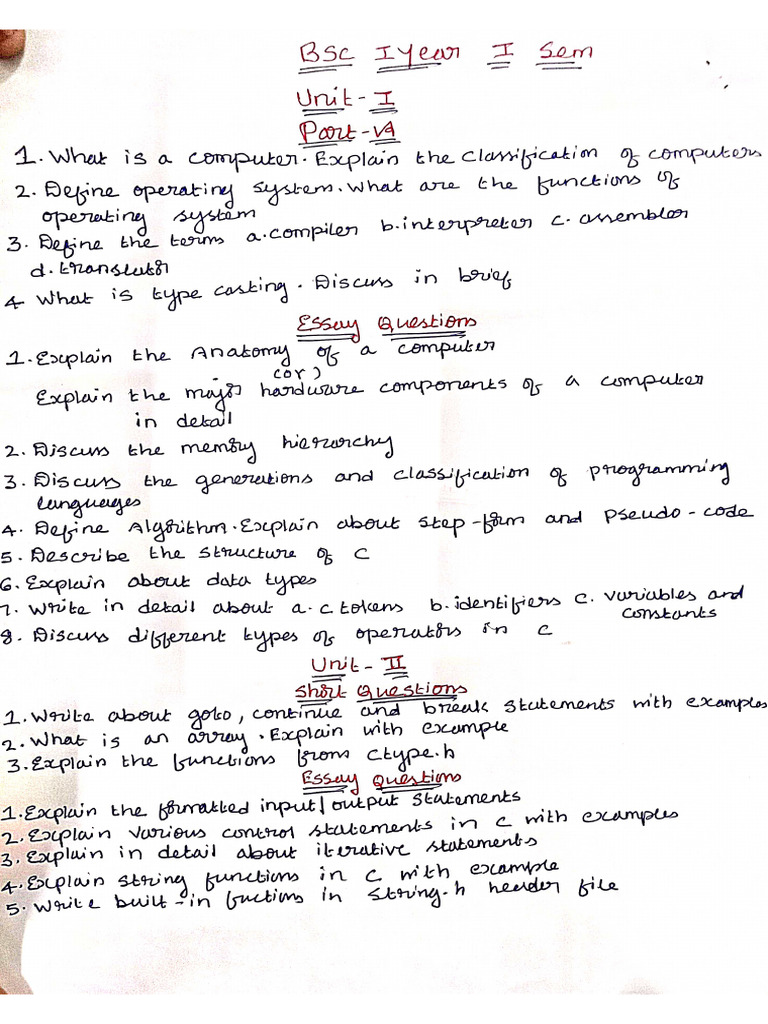 BSc I Year I Sem
Unit - I
Part - A
1. What is a computer. Explain the classification of computers
2. Define operating system. What are the functions of
operating system
3. Define the terms a. compiler b. interpreter c. assembler
d. translator
4 What is type casting. Discuss in brief
Essay Questions
1. Explain the Anatomy of a computer
(or)
Explain the major hardware components of a computer
in detail
2. Discuss the memory hierarchy
3. Discuss the generations and classification of programming
languages
4. Define Algorithm. Explain about step-form and pseudo-code
5. Describe the structure of C
6. Explain about data types
7. Write in detail about a. c tokens b. identifiers c. variables and
constants
8. Discuss different types of operators in c
Unit - II
Short Questions
1. Write about goto, continue and break statements with examples
2. What is an array. Explain with example
3. Explain the functions from ctype.h
Essay Questions
1. Explain the formatted input/output statements
2. Explain various control statements in c with examples
3. Explain in detail about iterative statements
4. Explain string functions in c with example
5. Write built-in fuctions in string.h header file